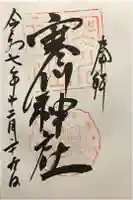 奉拝
寒川神社
令和七年十二月